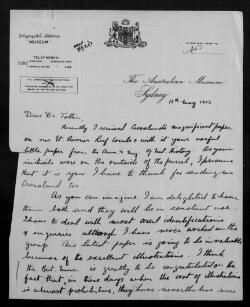 Telegraphic Address
MUSEUM
TELEPHONES:
The Australian Museum
Sydney
11th May 1922
Dear Dr Totton
Recently I received Crossland's magnificent paper
on and with it your
little paper from the Ann. & Mag. of Nat History. As your
initials were on the outside of the parcel, I presume
that it is you I have to thank for sending me
Crossland too.
As you can imagine I am delighted to have
them both and they will be in constant use.
I have to deal with most coral identifications
& enquiries although I have never worked on the
group. This latest paper is going to be invaluable
because of the excellent illustrations. I think
the Brit. Mus. is greatly to be congratulated on the
fact that, in these days when the cost of illustrations
is almost prohibitive, they have nevertheless